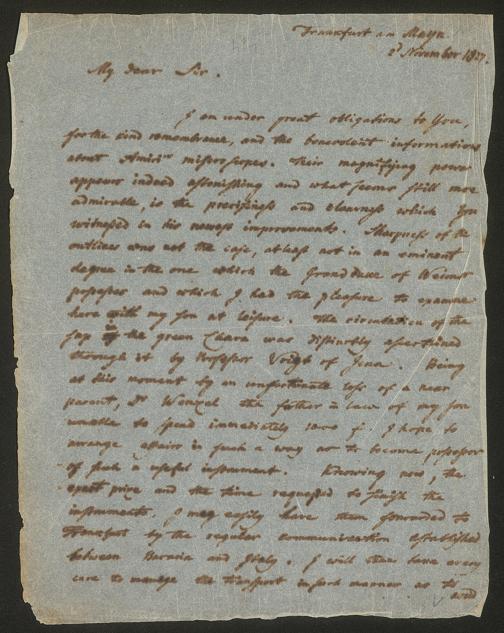 Frankfurt a/m Mayn
2d November 1827.
My dear Sir.
I am under great obligations to You,
for the kind remembrance, and the benevolent informations
about Amici's microscopes. Their magnifying power
appears indeed astonishing and what seems still more
admirable, is the preciseness and clearness which You
witnessed in his newest improvements. Sharpness of the
outlines was not the case, at least not in an eminent
degree in the one which the Grand Duke of Weimar
possesses and which I had the pleasure to examine
here with my son at leisure. The circulation of the
sap of the green Chara was distinctly ascertained
through it by Professor Voigt of Jena. Being
at this moment by an unfortunate loss of a near
parent, Dr Wenzel the father in law of my son
unable to spend immediately 1000 fl I hope to
arrange affairs in such a way as to become possessor
of such a useful instrument. Knowing now, the
exact price and the time requested to finish the
instruments. I may easily have them forwarded to
Frankfurt by the regular communication established
between Bavaria and Italy. I will then have every
care to manage the transport in such manner as to
avoid